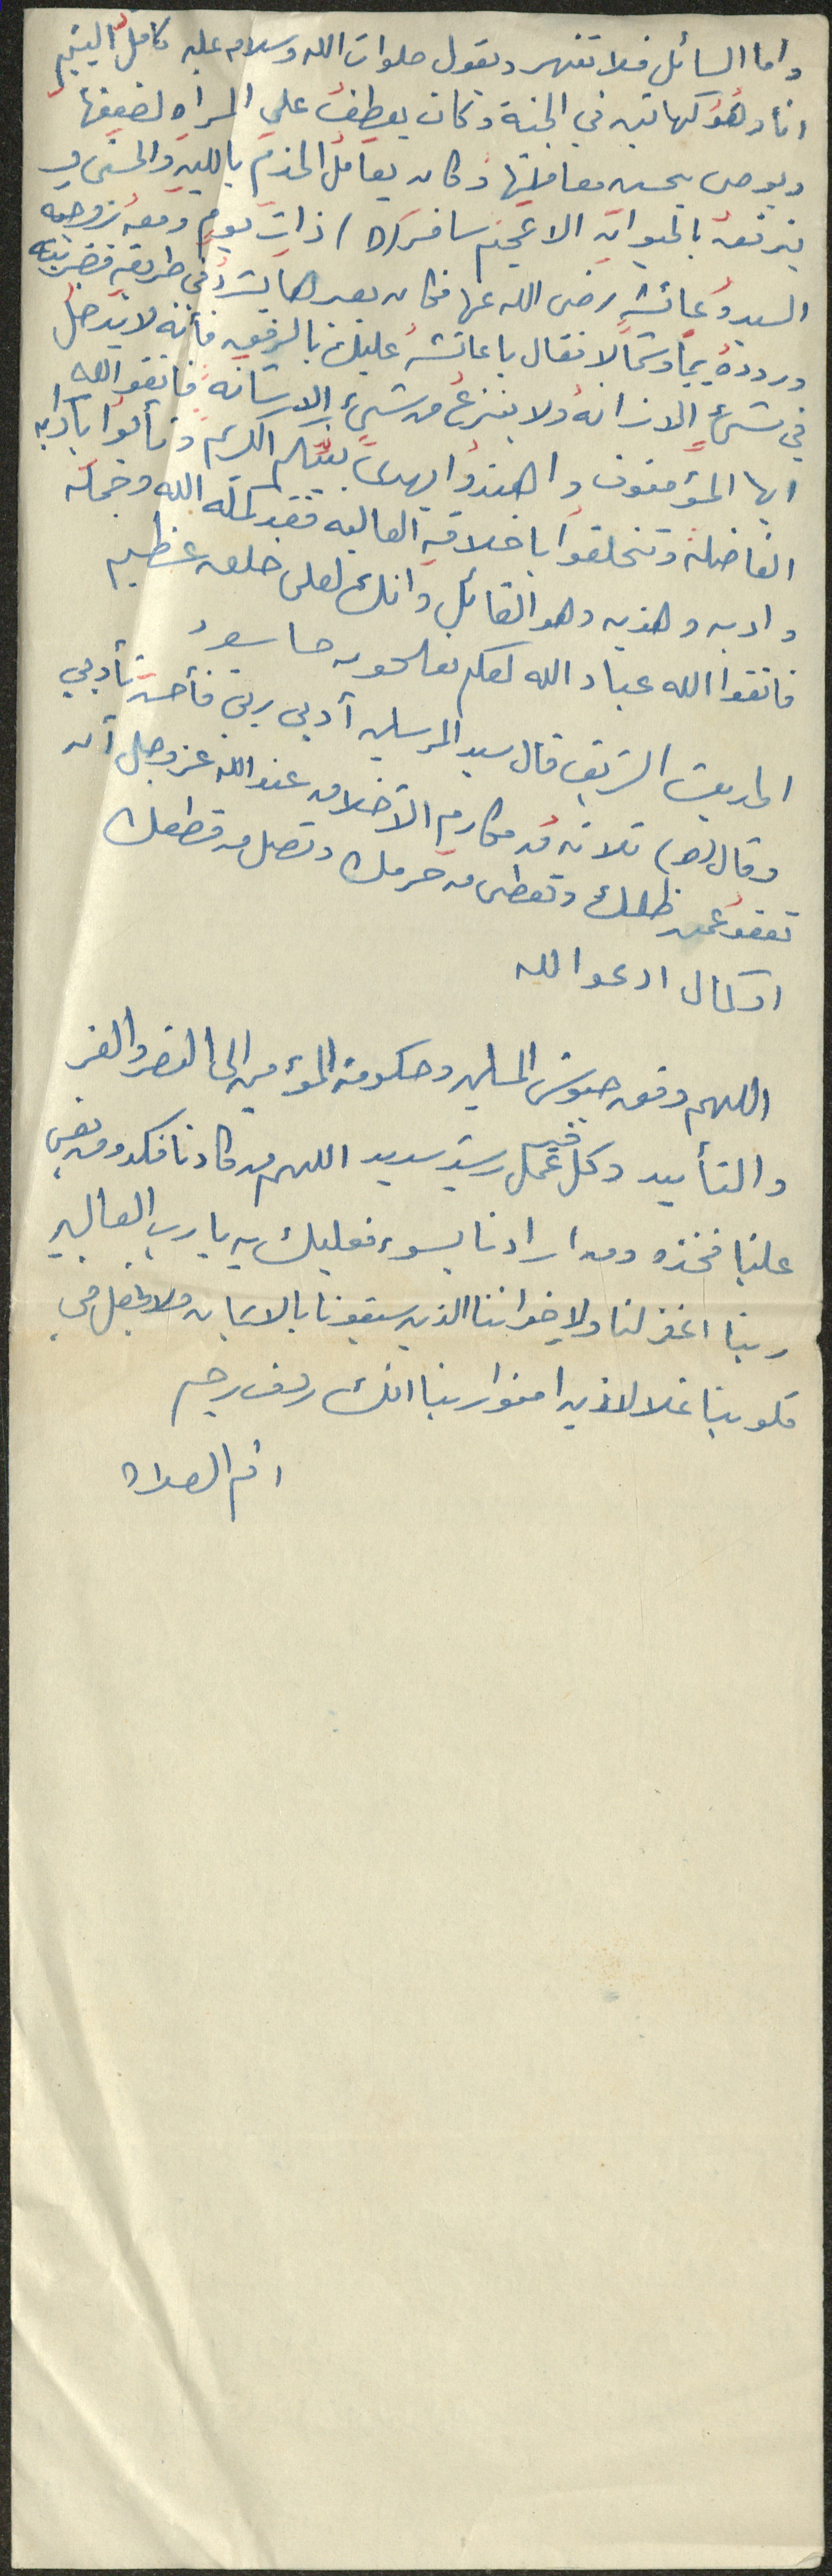 واما السائل فلا تنهر ويقول صلوات الله وسلامه عليه كافل اليتيم
انا وهو كهاتين في الجنة وكان يعطف على المراه لضعفها
ويوصي بحسن معاملتها وكان يعامل الخدم بالين والحسنى و
يترفق بالحيوان الاعجم سافر (ص) ذات يوم ومعه زوجه
السيده عائشه رضي الله عنها فكان بعيرها يشرد في طريقه فضربته
ورددهُ يميناً وشمالاً فقال يا عائشه عليك بالرفق فأنه لا يدخل
في شيء الا زانه ولا ينزع من شيء الا شانه فاتقوا الله
ايها المؤمنون واهتدوا بهدى نبيكم الكريم وتأدبوا بآدابه
الفاضله وتخلقوا باخلاقه العاليه فقد كمله الله وجمله
وادبه وهذبه وهو القائل وانك لعلى خلق عظيم
فاتقوا الله عباد الله لعلكم تفلحون
الحديث الشريف قال سيد المرسلين أدبني ربي فأحسن تأديبي
وقال (ص) ثلاثه من مكارم الأخلاق عند الله عز وجل أن
تعفو عمن ظلمك وتعطي من حرمك وتصل من قطعك
او كمال ادعوا الله
اللهم وفق جيوش المسلمين وحكومة المؤمنين الى النصر والعز
والتأييد وكل عمل فيه رشيد سديد اللهم من كادنا فكده ومن بغى
علينا فخذه ومن ارادنا بسوء فعليك به يا رب العالمين
ربنا اغفر لنا ولاخواننا الذين سبقونا بالايمان ولا تجعل في
قلوبنا غلا للذين امنوا ربنا انك رؤف رحيم
اقم الصلاة